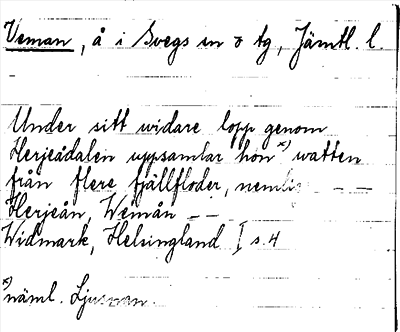 Veman, å i Svegs sn o tg, Jämtl. l.
Under sitt widare lopp genom
Herjeådalen uppsamlar hon x) watten
från flere fjällfloder, nemlig - -
Herjeån, Wemån - -
Widmark, Helsingland I s. 4
x) näml. Ljusnan.